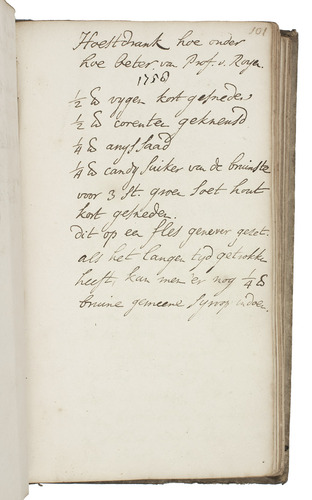 101
Hoestdrank hoe ouder
hoe beter. van Prof. v. Royen.
1758
½ ℔ vygen kort gesneden
½ ℔ corenten gekneusd
¼ ℔ anys saad
¼ ℔ candy suiker van de bruinste
voor 3 st. groen soet hout
kort gesneden.
dit op een fles genever geset.
als het langen tyd getrokken
heeft, kan men er nog ¼ ℔
bruine gemeene syroop indoen.